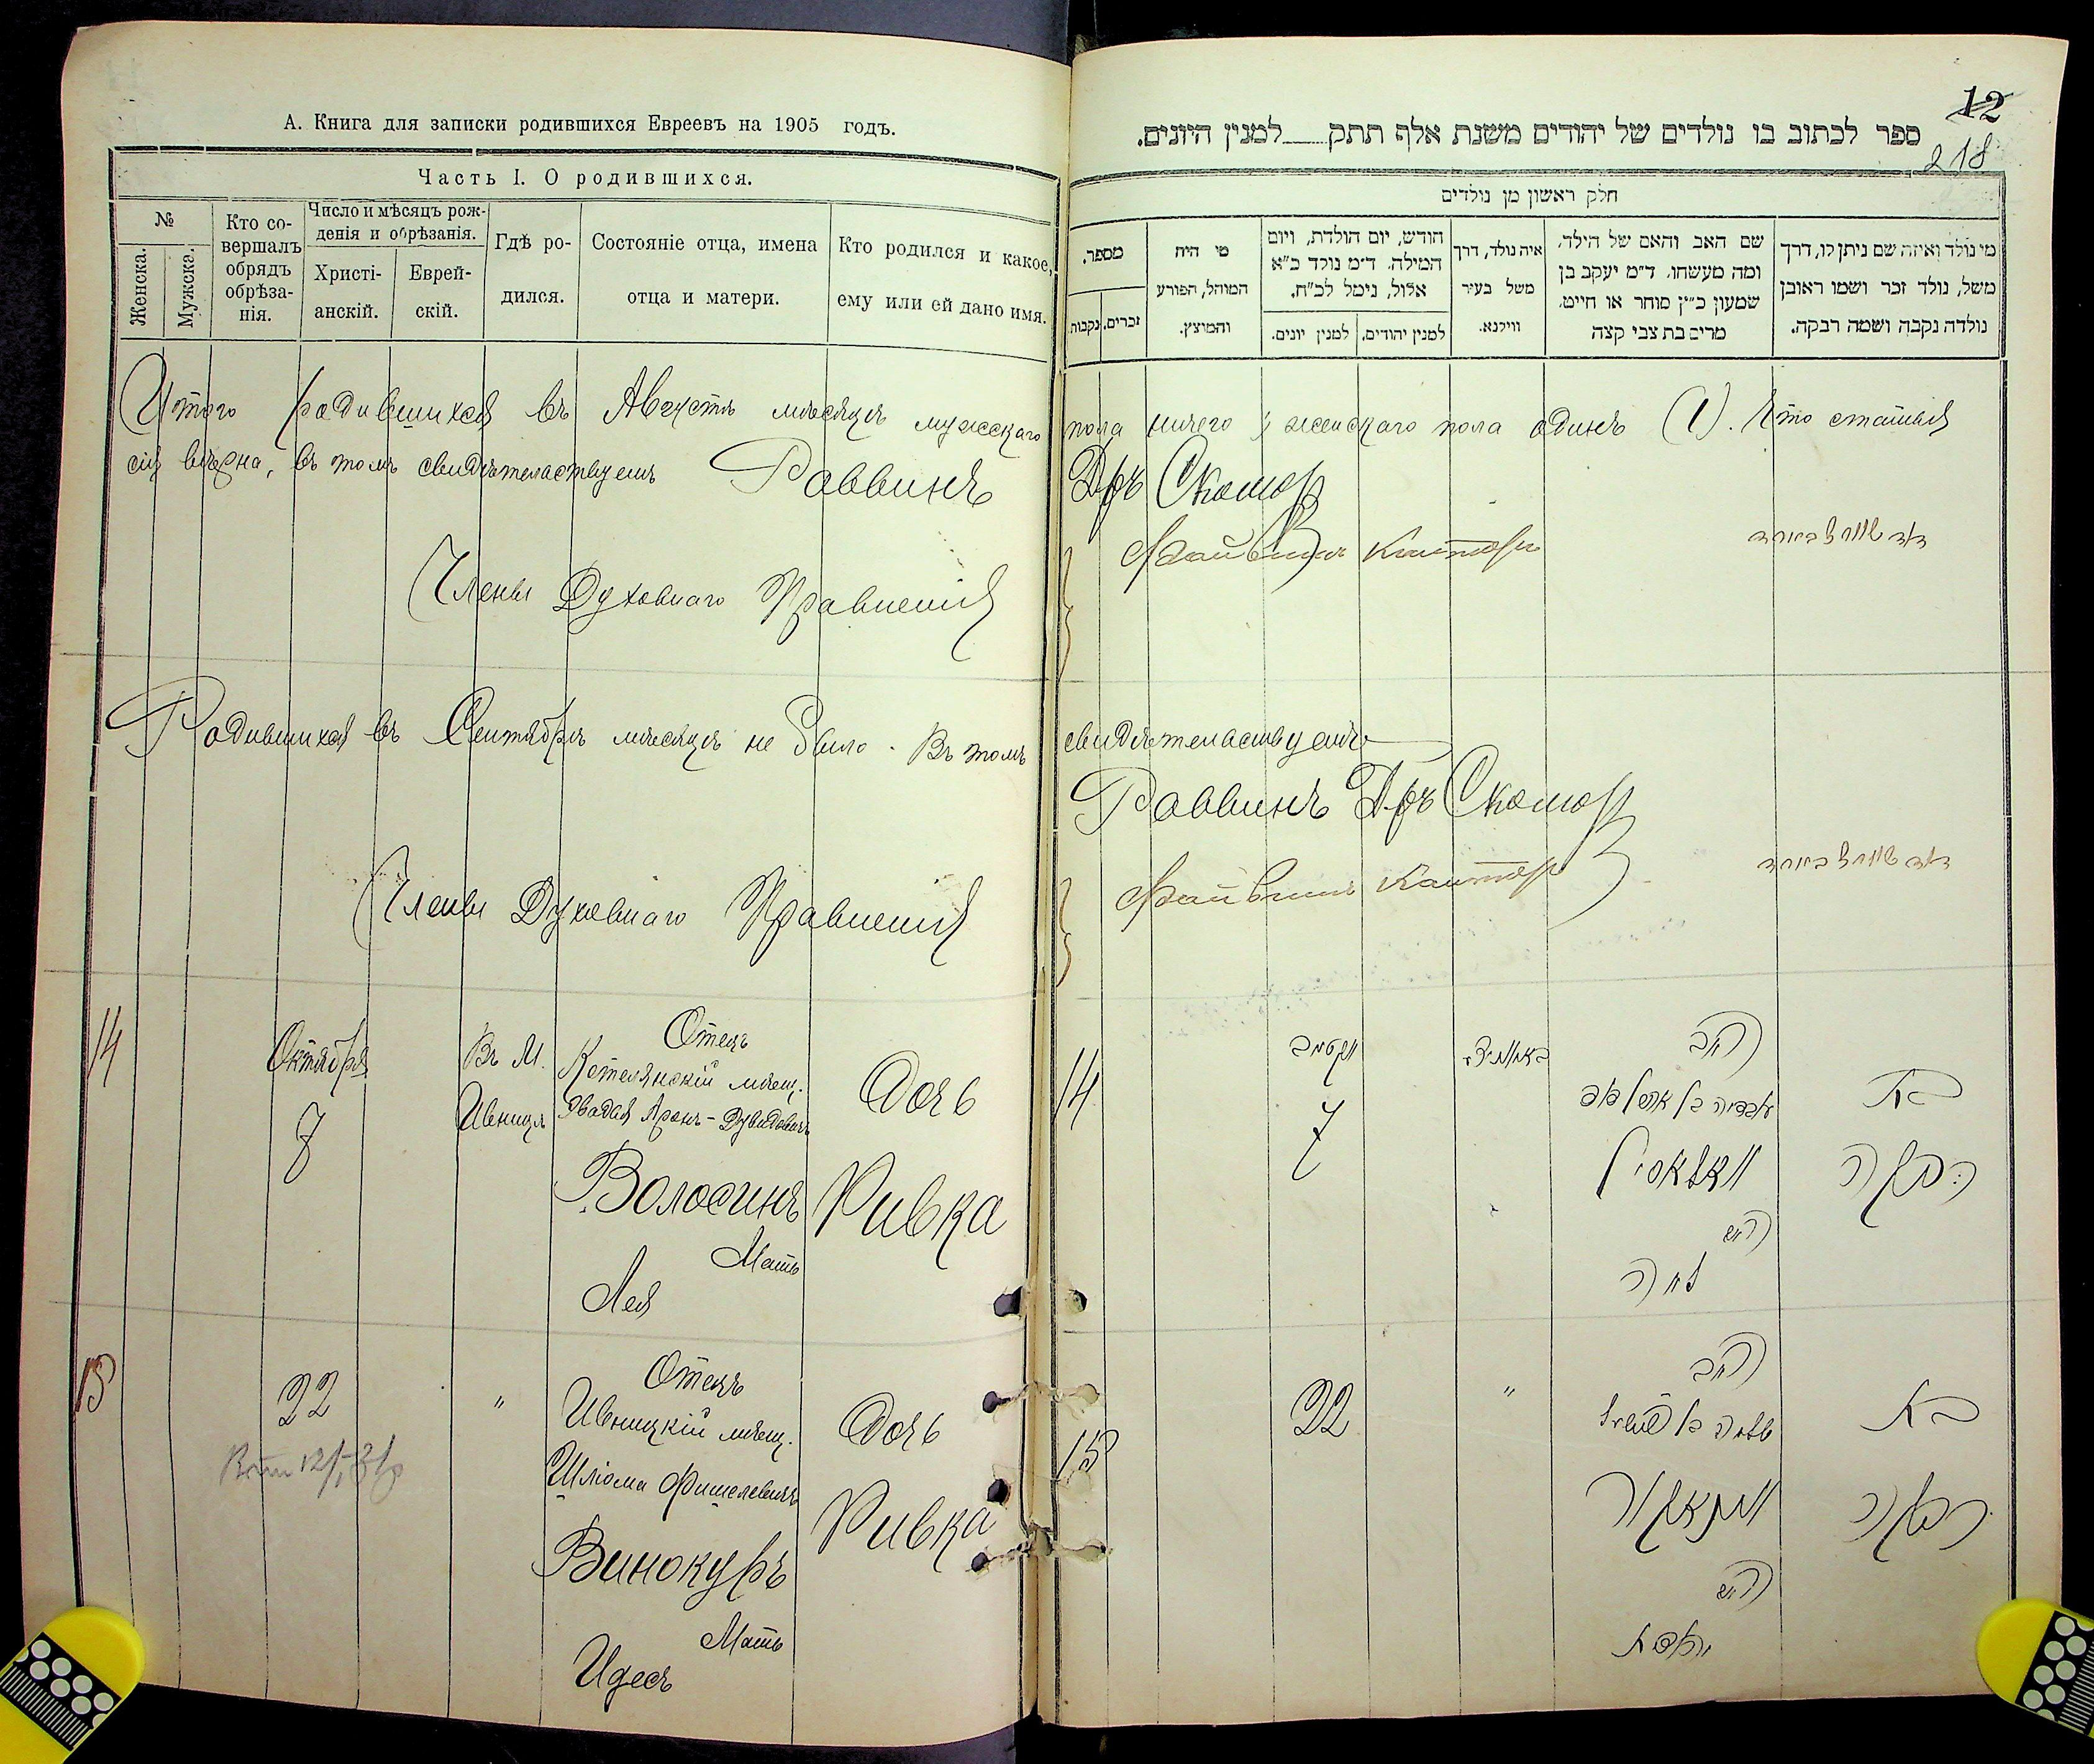 А. Книга для записки родившихся Евреевъ на 1905 годъ.
Часть I. О родившихся.
№
Женска.
Мужска.
Кто со-
вершалъ
обрядъ
обрѣза-
нія.
Число и мѣсяцъ рож-
денія и обрѣзанія.
Христі-
анскій.
Еврей-
скій.
Гдѣ ро-
дился.
Состояніе отца, имена
отца и матери.
Кто родился и какое,
ему или ей дано имя.
Итого родившихся въ Августѣ мѣсяцѣ мужскаго
сія вѣрна, въ томъ свидѣтельствуемъ Раввинъ
Члены Духовнаго Правленія
Родившихся въ Сентябрѣ мѣсяцѣ не было. Въ томъ
Члены Духовнаго Правленія
14
Октября
7
Въ М.
Ивницѣ
Отецъ
Котелянскій мѣщ.
Овадія Аронъ-Дувидовичъ
Волосинъ
Мать
Лея
Дочь
Ривка
15
22
"
Отецъ
Ивницкій мѣщ.
Шліома Фишелевичъ
Винокуръ
Мать
Идесъ
Дочь
Ривка
12
218
ספר לכתוב בו נולדים של יהודים משנת אלף תתק למנין היונים.
חלק ראשון מן נולדים
מספר.
זכרים.
נקבות.
מי היה
המוהל, הפורע
והמוצץ.
חודש, יום הולדת, ויום
המילה. ד״מ נולד כ״א
אלול, נימל לכ״ח.
למנין יהודים.
למנין יונים.
איה נולד, דרך
משל בעיר
ווילנא.
שם האב והאם של הילד,
ומה מעשהו. ד״מ יעקב בן
שמעון כ״ץ סוחר או חייט.
מרים בת צבי קצה
מי נולד ואיזה שם ניתן לו, דרך
משל, נולד זכר ושמו ראובן
נולדה נקבה ושמה רבקה.
пола ничего; женскаго пола одинъ (1). Что статья
Дръ Скоморо
Файвишъ Канторъ
свидѣтельствуемъ
Раввинъ Дръ Скоморо
Файвишъ Канторъ
14
7
האב
האם
לאה
בת
רבקה
15
22
"
האב
שלמה בן פישל
ווינאקור
האם
בת
רבקה